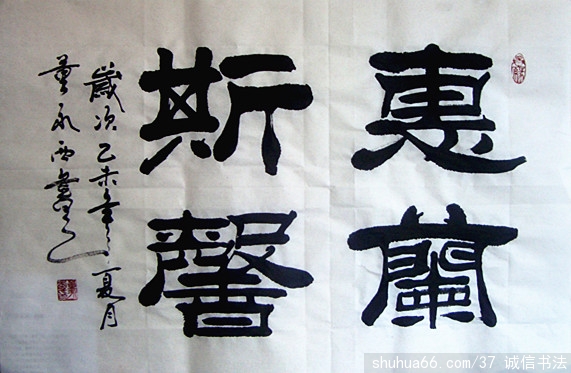 惠蘭
斯馨
歲次乙未年夏月
董永西書
shuhua66.com/37 诚信书法